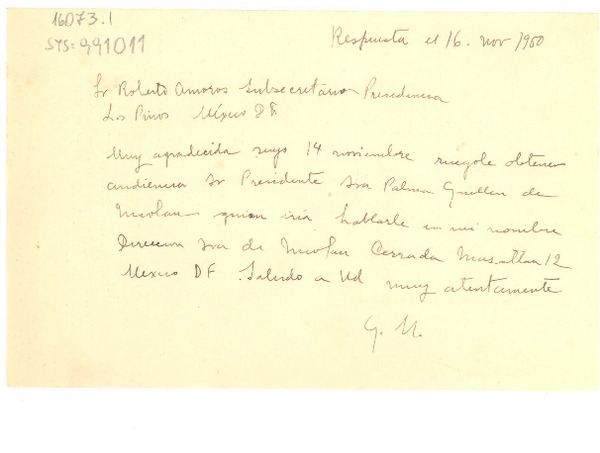 16073.1
SYS=991011
Respuesta el 16. nov 1950
Sr Roberto Amoros Subsecretario Presidencia
Los Pinos México DF
Muy agradecida suyo 14 noviembre ruegole obtener
audiencia Sr Presidente Sra Palma Guillen de
Nicolau quien iría hablarle en mi nombre
Direccion Sra de Nicolau Cerrada Mazatlan 12
Mexico DF. Saludo a Ud muy atentamente
G. M.